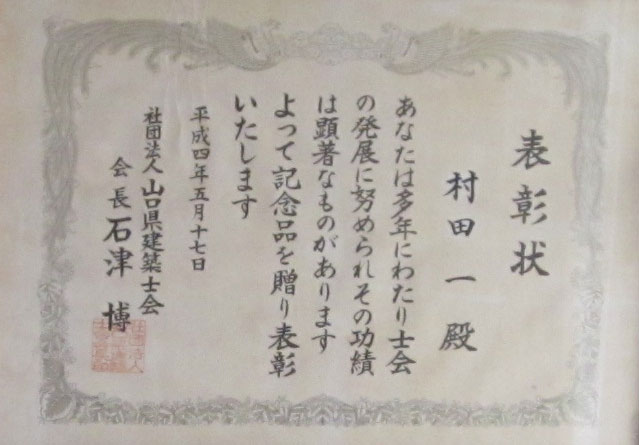 表彰状
村田一殿
あなたは多年にわたり士会
の発展に努められその功績
は顕著なものがあります
よって記念品を贈り表彰
いたします
平成四年五月十七日
社団法人山口県建築士会
会長石津博